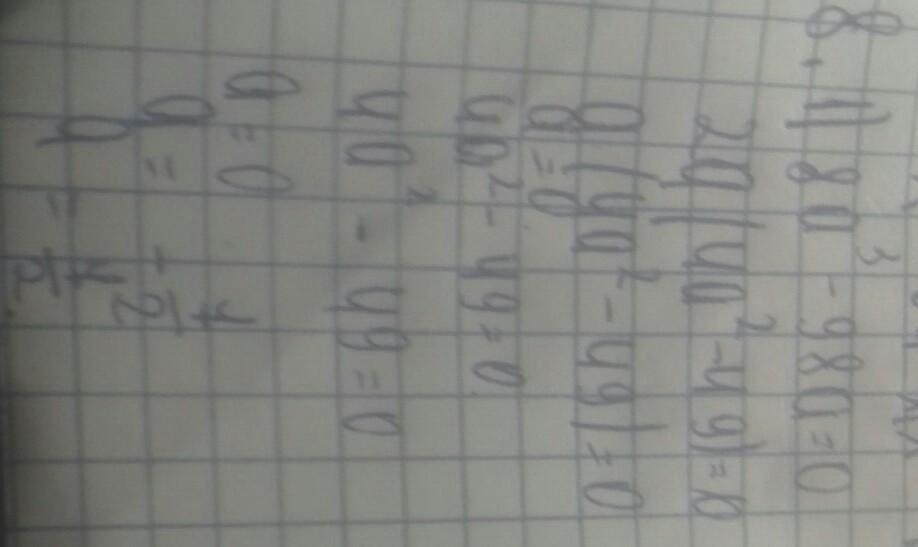 8. 1) 8a³ - 98a = 0
2a(4a² - 49) = 0
a(4a² - 49) = 0
a = 0
4a² - 49 = 0
4a² - 49 = 0
a = 0
a = -7/2
a = 7/2